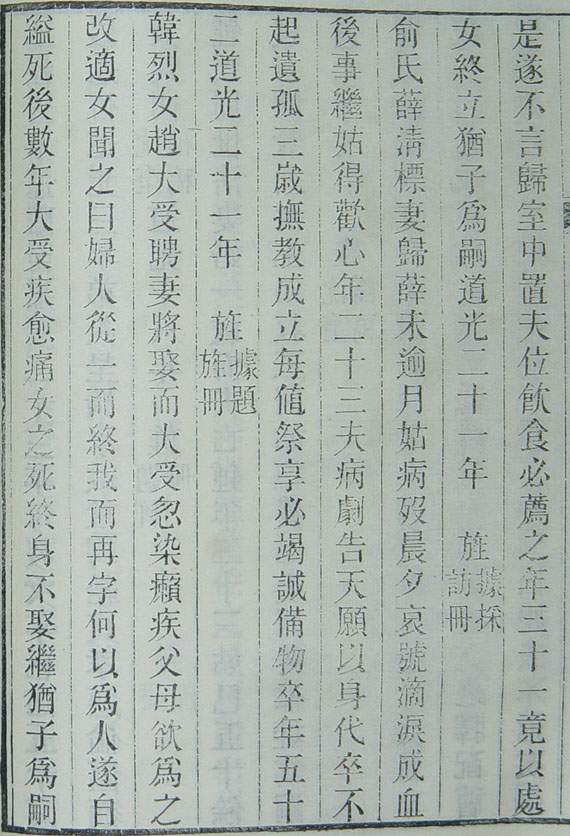 是遂不言歸室中置夫位飲食必薦之年三十一竟以處
女終立猶子爲嗣道光二十一年 旌據採訪冊
俞氏薛淸標妻歸薛未逾月姑病歿晨夕哀號滴淚成血
後事繼姑得歡心年二十三夫病劇告天願以身代卒不
起遺孤三歲撫教成立每値祭享必竭誠備物卒年五十
二道光二十一年 旌據題旌冊
韓烈女趙大受聘妻將娶而大受忽染癩疾父母欲爲之
改適女聞之曰婦人從一而終我而再字何以爲人遂自
縊死後數年大受疾愈痛女之死終身不娶繼猶子爲嗣